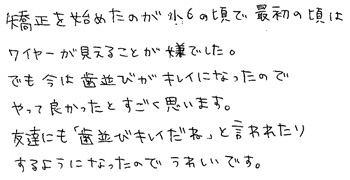 矯正を始めたのが小6の頃で最初の頃は
ワイヤーが見えることが嫌でした。
でも今は歯並びがキレイになったので
やって良かったとすごく思います。
友達にも「歯並びキレイだね」と言われたり
するようになったのでうれしいです。